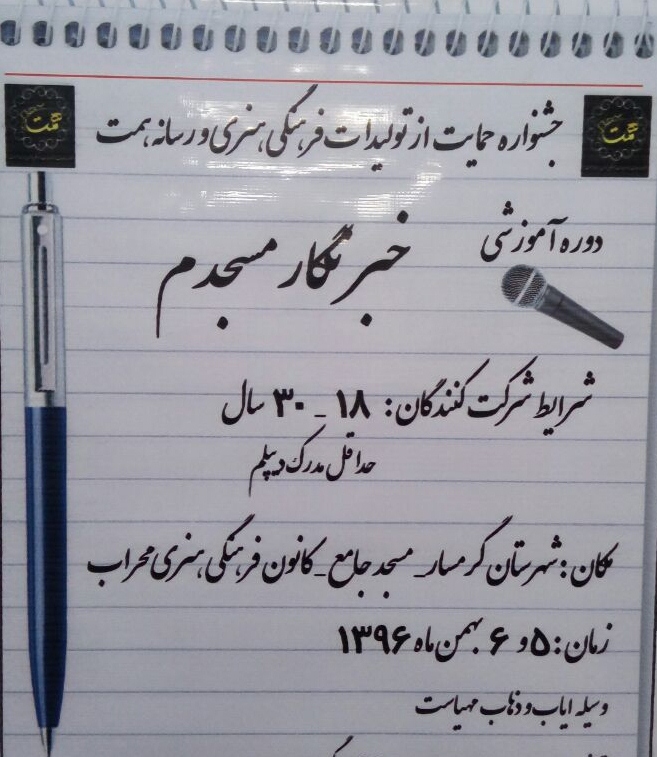 جشنواره حمایت از تولیدات فرهنگی، هنری و رسانه همت
همت
همت
دوره آموزشی
خبرنگار مسجدم
شرایط شرکت کنندگان: ۱۸ - ۳۰ سال
حداقل مدرک دیپلم
مکان: شهرستان گرمسار - مسجد جامع - کانون فرهنگی، هنری محراب
زمان: ۵ و ۶ بهمن ماه ۱۳۹۶
وسیله ایاب و ذهاب مهیاست